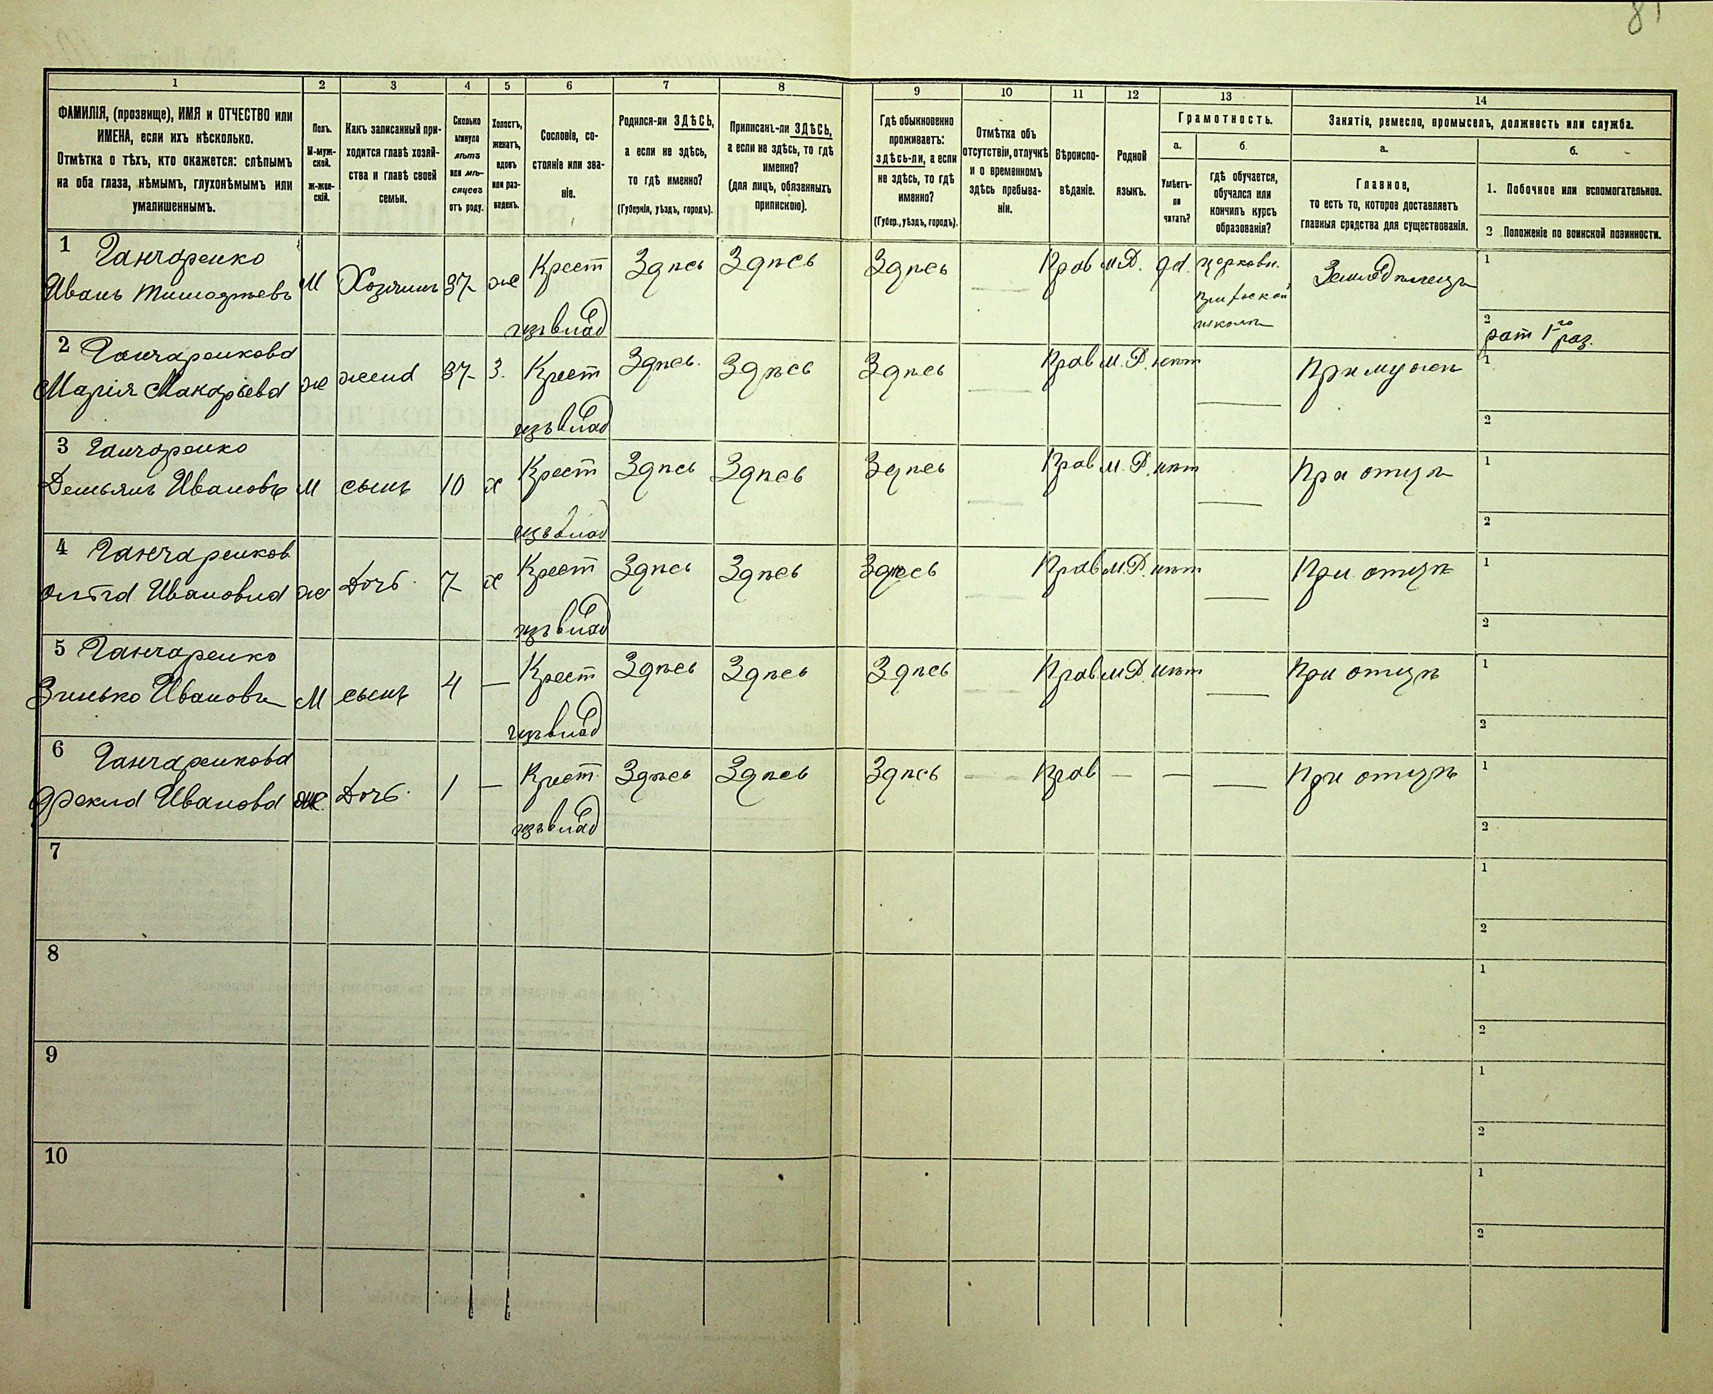 81
1 2 3 4 5 6 7 8 9 10 11 12 13 14
ФАМИЛІЯ, (прозвище), ИМЯ и ОТЧЕСТВО или
ИМЕНА, если ихъ нѣсколько.
Отмѣтка о тѣхъ, кто окажется: слѣпымъ
на оба глаза, нѣмымъ, глухонѣмымъ или
умалишеннымъ.
Полъ.
М-муж-
ской.
ж-жен-
скій.
Какъ записанный при-
ходится главѣ хозяй-
ства и главѣ своей
семьи.
Сколько
минуло
лѣтъ
или мѣ-
сяцевъ
отъ роду.
Холостъ,
женатъ,
вдовъ
или раз-
веденъ.
Сословіе, со-
стояніе или зва-
ніе.
Родился-ли ЗДѢСЬ,
а если не здѣсь,
то гдѣ именно?
(Губернія, уѣздъ, городъ).
Приписанъ-ли ЗДѢСЬ,
а если не здѣсь, то гдѣ
именно?
(для лицъ, обязанныхъ
припискою).
Гдѣ обыкновенно
проживаетъ:
здѣсь-ли, а если
не здѣсь, то гдѣ
именно?
(Губер., уѣздъ, городъ).
Отмѣтка объ
отсутствіи, отлучкѣ
и о временномъ
здѣсь пребыва-
ніи.
Вѣроиспо-
вѣданіе.
Родной
языкъ.
Грамотность.
а.
Умѣетъ-
ли
читать?
б.
гдѣ обучается,
обучался или
кончилъ курсъ
образованія?
Занятіе, ремесло, промыселъ, должность или служба.
а.
Главное,
то есть то, которое доставляетъ
главныя средства для существованія.
б.
1. Побочное или вспомогательное.
2 Положеніе по воинской повинности.
1 Ганчаренко
Иванъ Тимофѣевъ М Хозяинъ 37 же Крест Здѣсь Здѣсь Здѣсь Прав М.Р. да. церковн. Земледѣлецъ 1
изъ влад школѣ 2 рат 1го раз.
2 Ганчаренкова
Марія Макарьева ж жена 37 З. Крест Здѣсь. Здѣсь Здѣсь Прав М.Р. нѣт При мужѣ 1
изъ влад 2
3 Ганчаренко
Демьянъ Ивановъ М сынъ 10 х Крест Здѣсь Здѣсь Здѣсь Прав М.Р. нѣт При отцѣ 1
изъ влад 2
4 Ганчаренков
Ивановна ж Дочь. 7 х Крест Здѣсь Здѣсь Здѣсь Прав М.Р. нѣт При отцѣ 1
изъ влад 2
5 Ганчаренко
Зинько Ивановъ М сынъ 4 — Крест Здѣсь Здѣсь Здѣсь Прав М.Р. нѣт При отцѣ 1
изъ влад 2
6 Ганчаренкова
Ивановa ж. Дочь. 1 — Крест Здѣсь Здѣсь Здѣсь Прав — — При отцѣ 1
изъ влад 2
7 1
2
8 1
2
9 1
2
10 1
2